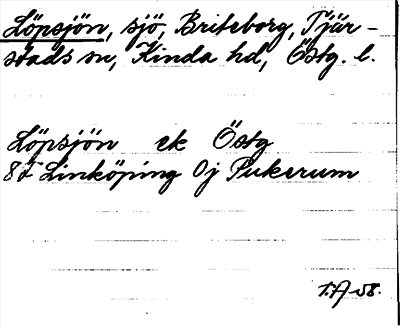 Löpsjön, sjö, Briteborg, Tjär-
stads sn, Kinda hd, Östg. l.
Löpsjön ek Östg
8F Linköping 0j Pukerum
T.A-58.